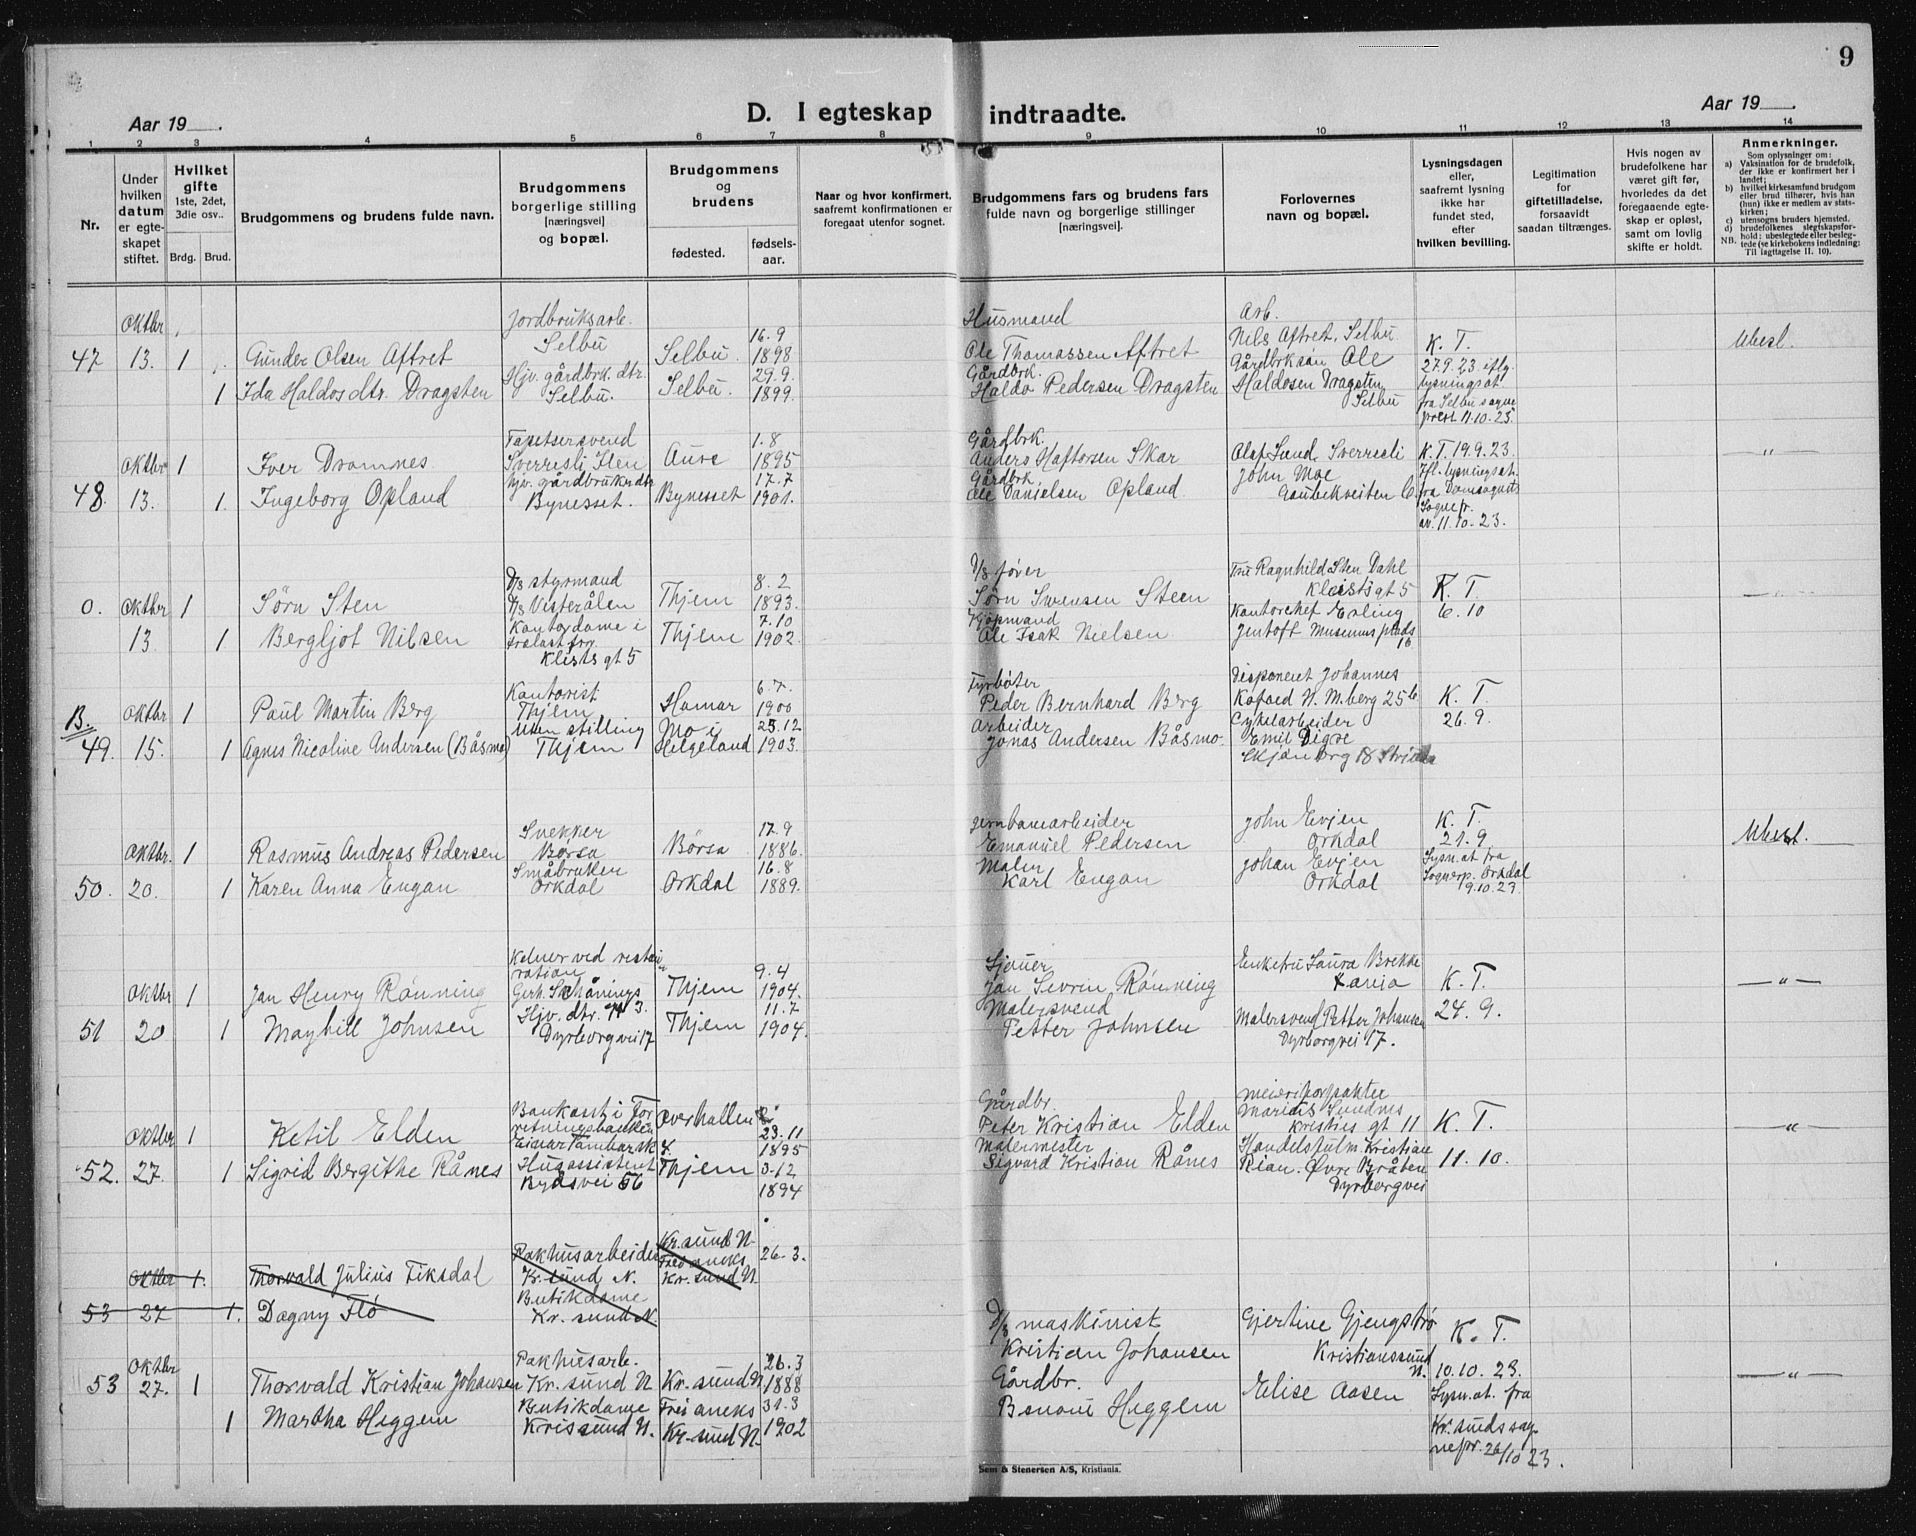 9
Aar 19
D. I egteskap indtraadte.
Aar 19
1 2 3 4 5 6 7 8 9 10 11 12 13 14
Nr.
Under hvilken datum er egteskapet stiftet.
Hvilket gifte 1ste, 2det, 3die osv..
Brdg. Brud.
Brudgommens og brudens fulde navn.
Brudgommens borgerlige stilling [næringsvei] og bopæl.
Brudgommens og brudens
fødested. fødselsaar.
Naar og hvor konfirmert, saafremt konfirmationen er foregaat utenfor sognet.
Brudgommens fars og brudens fars fulde navn og borgerlige stillinger [næringsvei].
Forlovernes navn og bopæl.
Lysningsdagen eller, saafremt lysning ikke har fundet sted, efter hvilken bevilling.
Legitimation for giftetilladelse, forsaavidt saadan tiltrænges.
Hvis nogen av brudefolkene har været gift før, hvorledes da det foregaaende egteskap er opløst, samt om lovlig skifte er holdt.
Anmerkninger.
Som oplysninger om:
a) Vaksination for de brudefolk, der ikke er konfirmert her i landet;
b) hvilket kirkesamfund brudgom eller brud tilhører, hvis han (hun) ikke er medlem av statskirken;
c) utensogns bruders hjemsted.
d) brudefolkenes slegtskapsforhold: ubeslegtede eller beslegtede (se kirkebokens indledning:
NB. Til iagttagelse II. 10).
Oktbr Jordbruksarb. Husmand Arb.
47 13. 1 Gunder Olsen Aftret Selbu Selbu 16.9 1898 Ole Thomassen Aftret Nils Aftret, Selbu K. T. Ubesl.
1 Ida Haldosdtr. Dragsten Hjv. gårdbrk. dtr. Selbu. Selbu. 29.9. 1899. Gårdbrk. Haldo Pedersen Dragsten Gårdbrksøn Ole Haldosen Dragsten Selbu 27.9.23 iflg. lysningsat. fra Selbu sogneprest 11.10.23
Oktbr 1 Iver Dromnes Tapetsersvend Sverresli Ilen Aure 1.8 1895 Gårdbrk. Anders Haftorsen Skar Olaf Lund, Sverresli K. T. 19.9.23. „
48. 13. 1. Ingeborg Opland hjv. gårdbrukerdtr Bynesset. Bynesset 17.7 1901. Gårdbrk Ole Danielsen Opland John Moe Gaubekveiten 6. Ifl. lysningsat. fra Domsognets Sognepr. av. 11.10.23.
0. Oktbr 1 Sørn Sten D/s styrmand D/s Vesterålen Thjem 8.2 1893. D/s fører Sørn Swensen Steen Fru Ragnhild Sten Dahl Kleistsgt 5 K. T. „
13. 1 Bergljot Nilsen Kontordame i Kleistsgt 5 Thjem 7.10 1902 Kjøpmand Ole Isak Nielsen Kontorchef Erling Jentoft Museumsplads 1b 6.10
B. Oktbr 1 Paul Martin Berg Kontorist Thjem Hamar 6.7. 1900 Fyrbøter Peder Bernhard Berg Disponent Johannes Kofoed N. M.berg 25b K. T.
49. 15. 1 Agnes Nicoline Andersen (Båsmo) Uten stilling Thjem Mo i Helgeland 25.12 1903. Arbeider Jonas Andersen Båsmo. Cykelarbeider Emil Digre 26.9.
Oktbr. 1 Rasmus Andreas Pedersen Snekker Børsa Børsa 17.9 1886. Jernbanearbeider Emanuel Pedersen John Evjen Orkdal K. T. 21.9 Ubesl.
50. 20. 1 Karen Anna Engan Småbruker Orkdal Orkdal 16.8 1889. Maler Karl Engan Johan Evjen Orkdal Lysn.at fra Sognepr. Orkdal 19.10.23
Oktbr 1 Jan Henry Rønning Kelner ved restauration Gerh. Schønings gt 3. Thjem 9.4 1904. Sjauer Jan Sevrin Rønning Enkefru Laura Brekke K. T. — „ —
51 20 1 Mayhill Johnsen Hjv. dtr. Dyrborgvei 17 Thjem 11.7 1904. Malersvend Petter Johnsen Malersvend Petter Johansen Dyrborgvei 17. 24.9.
Oktbr 1 Ketil Elden Bankass. i Forretningsbanken Overhallen 23.11 1895 Gårdbr. Peter Kristian Elden Meieriforpakter Marius Sundnes Kristies gt 11 K. T. — „ —
52. 27. 1 Sigrid Bergithe Rånes Husassistent Byåsvei 56 Thjem 3.12 1894 Malermester Sigvard Kristian Rånes Handelsfulm. Kristian Rian. Øvre Bråten Dyrborgvei 11.10.
Oktbr 1. Thorvald Julius Fiksdal Pakhusarbeider Kr.sund N. Kr.sund N. 26.3.
53 27 1. Dagny Flø Butikdame Kr.sund N. Frei aneks Kr.sund N.
Oktbr 27. 53 1 Thorvald Kristian Johansen Pakhusarb. Kr.sund N Kr.sund N 26.3 1888 D/s maskinist Kristian Johansen Gjertine Gjengstø Kristianssund N. K. T. 10.10.23. — „ —
1 Martha Heggem Butikdame Krissund N. Frei aneks Kr.sund N. 31.3 1902 Gårdbr. Heggem Elise Aasen Lysn.at. fra Kr.sunds sognepr. 26/10 23.
Sem & Stenersen A/S, Kristiania.